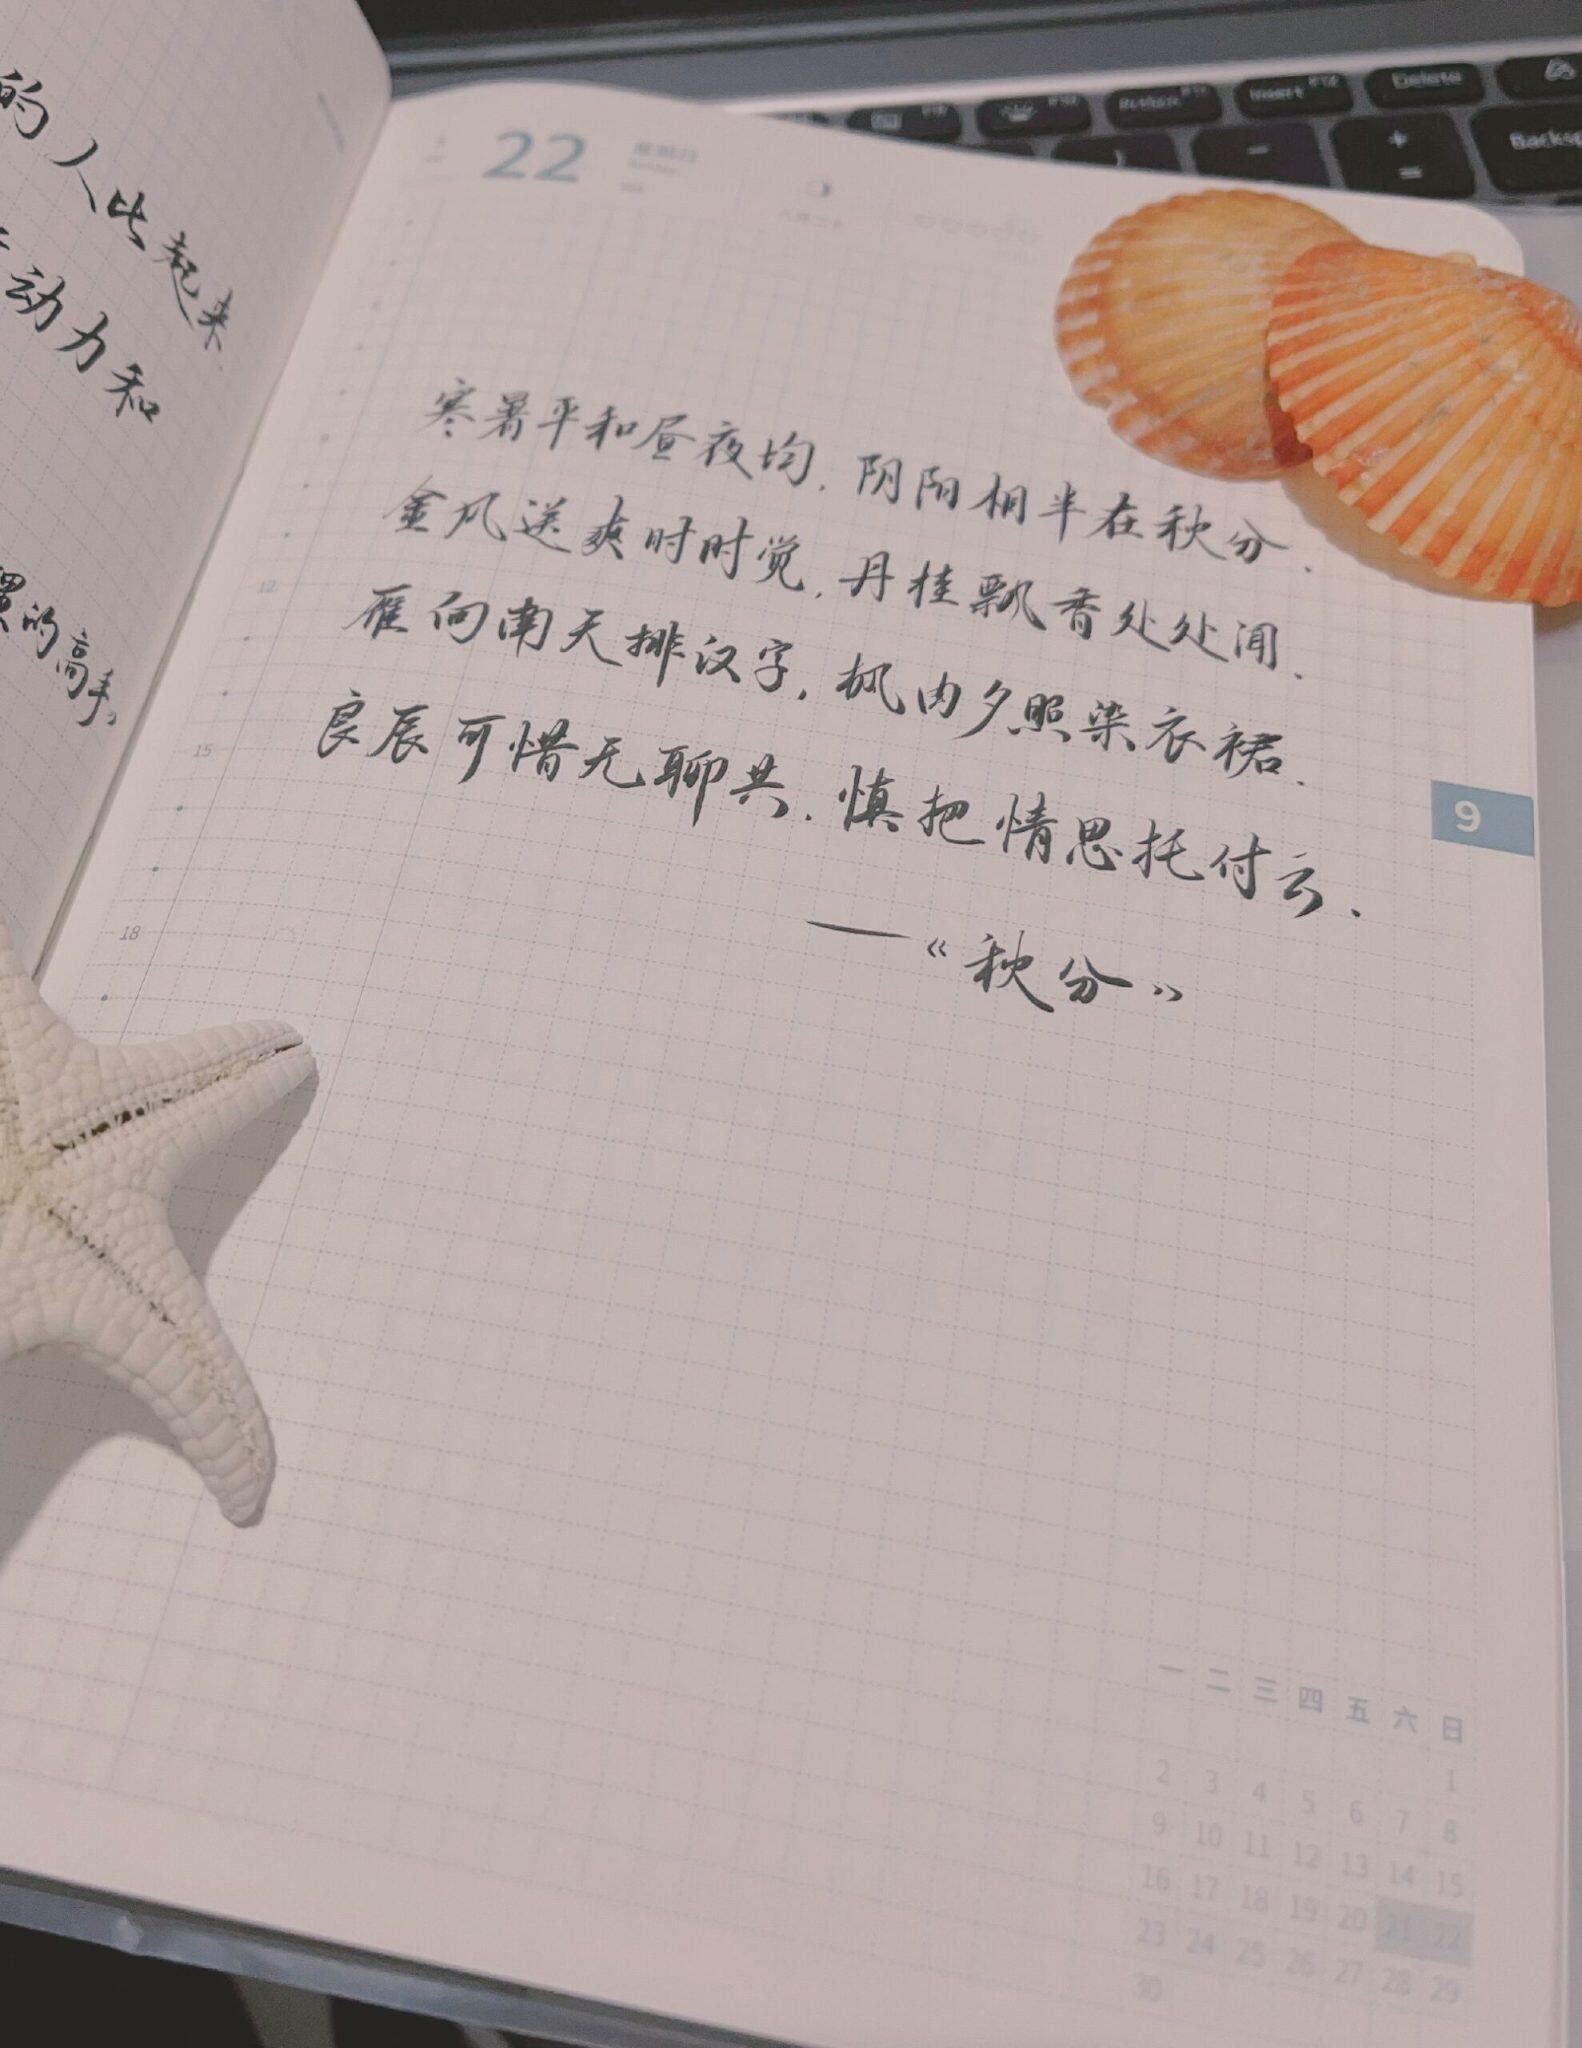 的人比起来
动力和
的高手,
22
星期日
八月二十
寒暑平和昼夜均.阴阳相半在秋分.
金风送爽时时觉.丹桂飘香处处闻.
雁向南天排汉字,枫内夕照染衣裙.
良辰可惜无聊共.慎把情思托付云.
——《秋分》
9
12
15
18
一 二 三 四 五 六 日
1
2 3 4 5 6 7 8
9 10 11 12 13 14 15
16 17 18 19 20 21 22
23 24 25 26 27 28 29
30
Insert F12
Delete
Backsp
F10
+
=